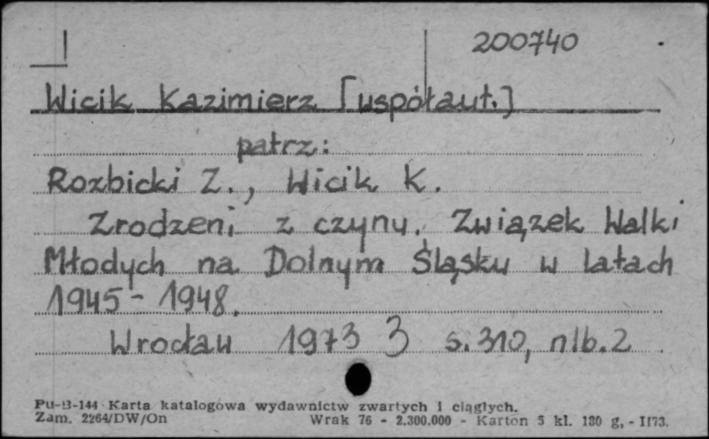 200740
Wicik Kazimierz [współaut.]
patrz:
Rozbicki Z., Wicik K.
Zrodzeni z czynu. Związek Walki
Młodych na Dolnym Śląsku w latach
1945-1948.
Wrocław 1973 s. 310, nlb. 2
Pu-B-144 Karta katalogowa wydawnictw zwartych i ciągłych.
Zam. 2264/DW/On Wrak 76 - 2.300.000 - Karton 5 kl. 180 g, - II73.